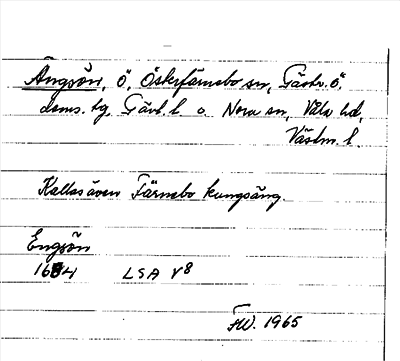 Ängsön, ö, Österfärnebo sn, Gästr. ö.
doms. tg, Gävl. l. o. Nora sn, Våla hd,
Västm. l.
Kallas även Färnebo kungsäng.
Engsön
1634 LSA V8
FW. 1965